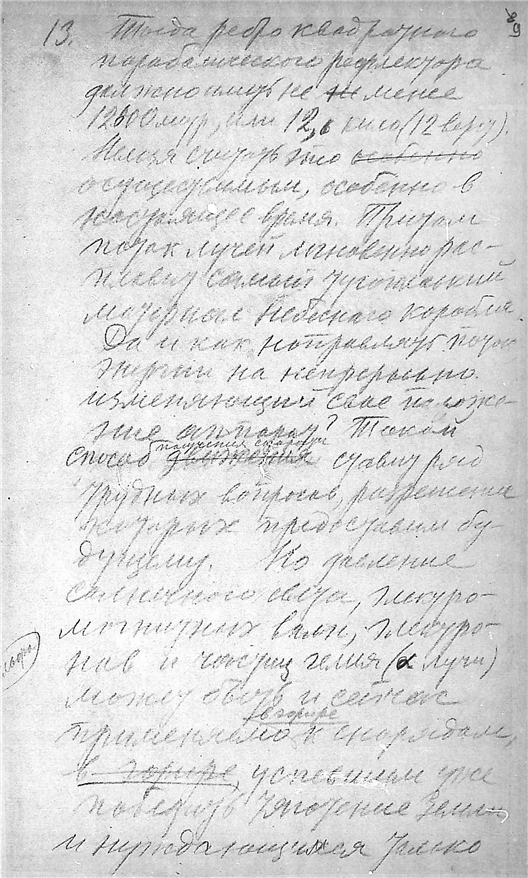 89
13. Тогда ребро квадратного
параболического рефлектора
должно быть не менее
12600 метр, или 12,6 кило (12 верст).
Нельзя считать это особенно
осуществимым, особенно в
настоящее время. Притом
поток лучей мгновенно рас-
плавит самый тугоплавкий
материал небесного корабля.
Да и как направлять поток
энергии на непрерывно
изменяющий свое положе-
ние аппарат? Такой
получения скорости
способ движения ставит ряд
трудных вопросов, разрешение
которых предоставим бу-
дущему. Но давление
солнечного света, электро-
магнитных волн, электро-
нов и частиц гелия (α лучи)
может быть и сейчас
в эфире
применяемо к снарядам,
в эфире, успевшим уже
победить тяготение Земли
и нуждающихся только